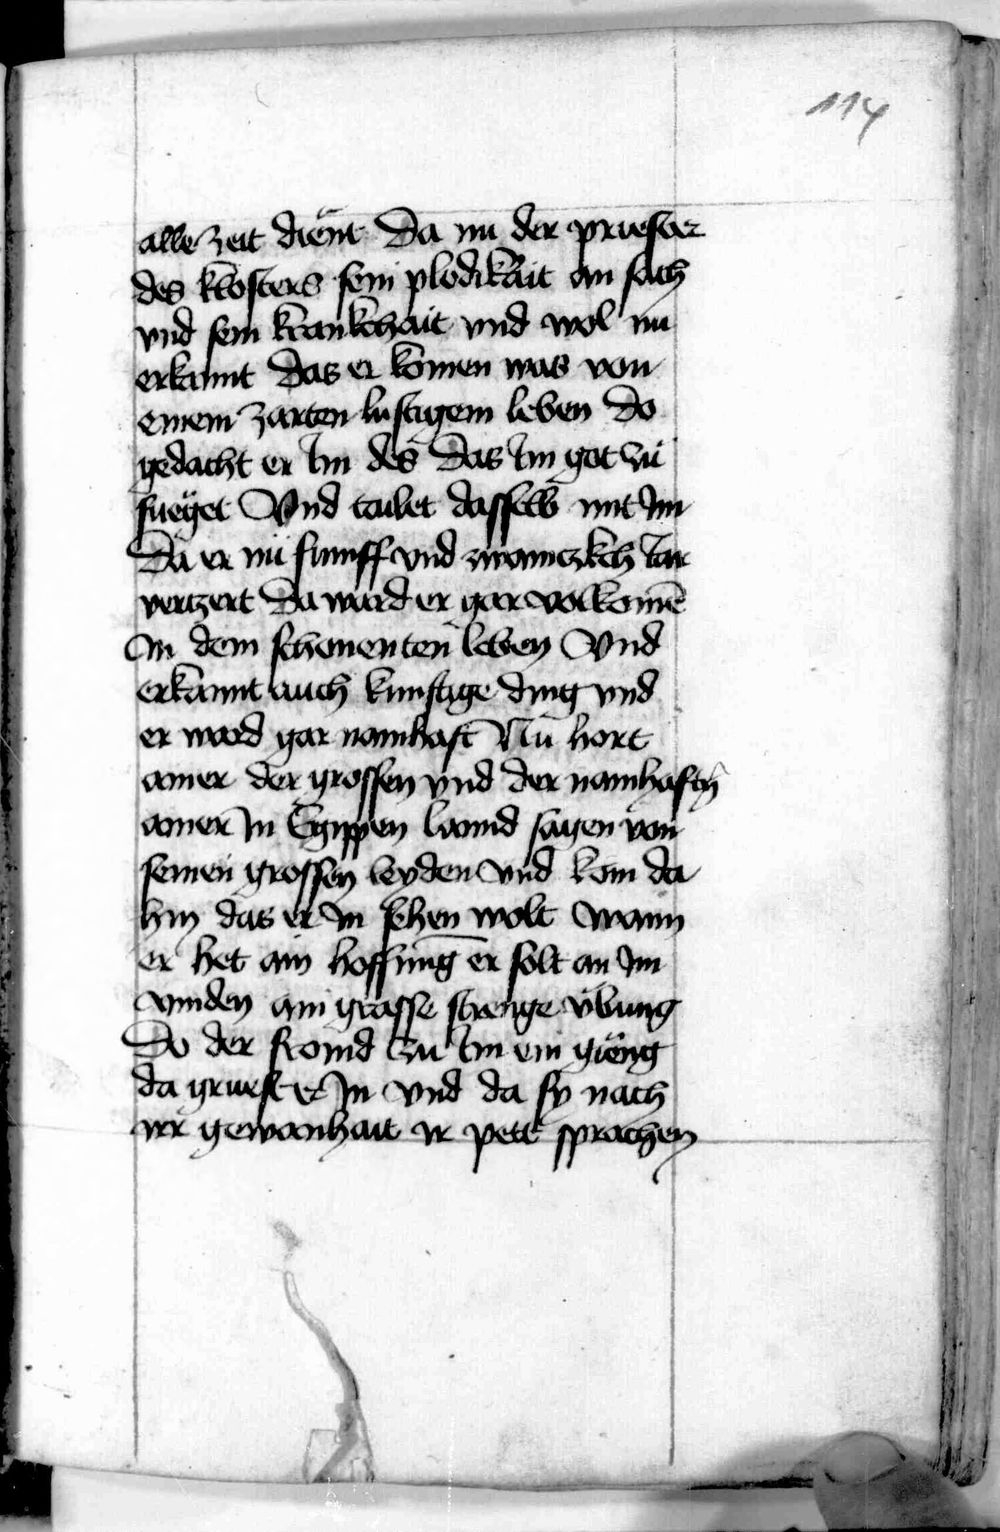 114
alle zeit dient Da nu der priester
des klosters sein plodikait an sach
vnd sein krankchait vnd wol nu
erkannt das er komen was von
einem zarten lustigem leben Do
gedacht er Im des das Im got zu
fueget Vnd tailet dasselb mit Im
Da er nu funff vnd zwainczkch Iar
verczert Da ward er gar volkomē
In dem schonenten leben Vnd
erkannt auch kunftige ding vnd
er ward gar namhaft Nu hort
ainer der grossen vnd der namhaftn
ainer In Egippen lannd sagen von
seinen grossen leyden vnd kom da
hin das er In sehen wolt wann
er het ain hoffnung er solt an Im
vinden ain grosse strenge vbung
Do der fromd zu Im ein gieng
da gruest er In vnd da sy nach
irr gewonhait ir pett sprachen